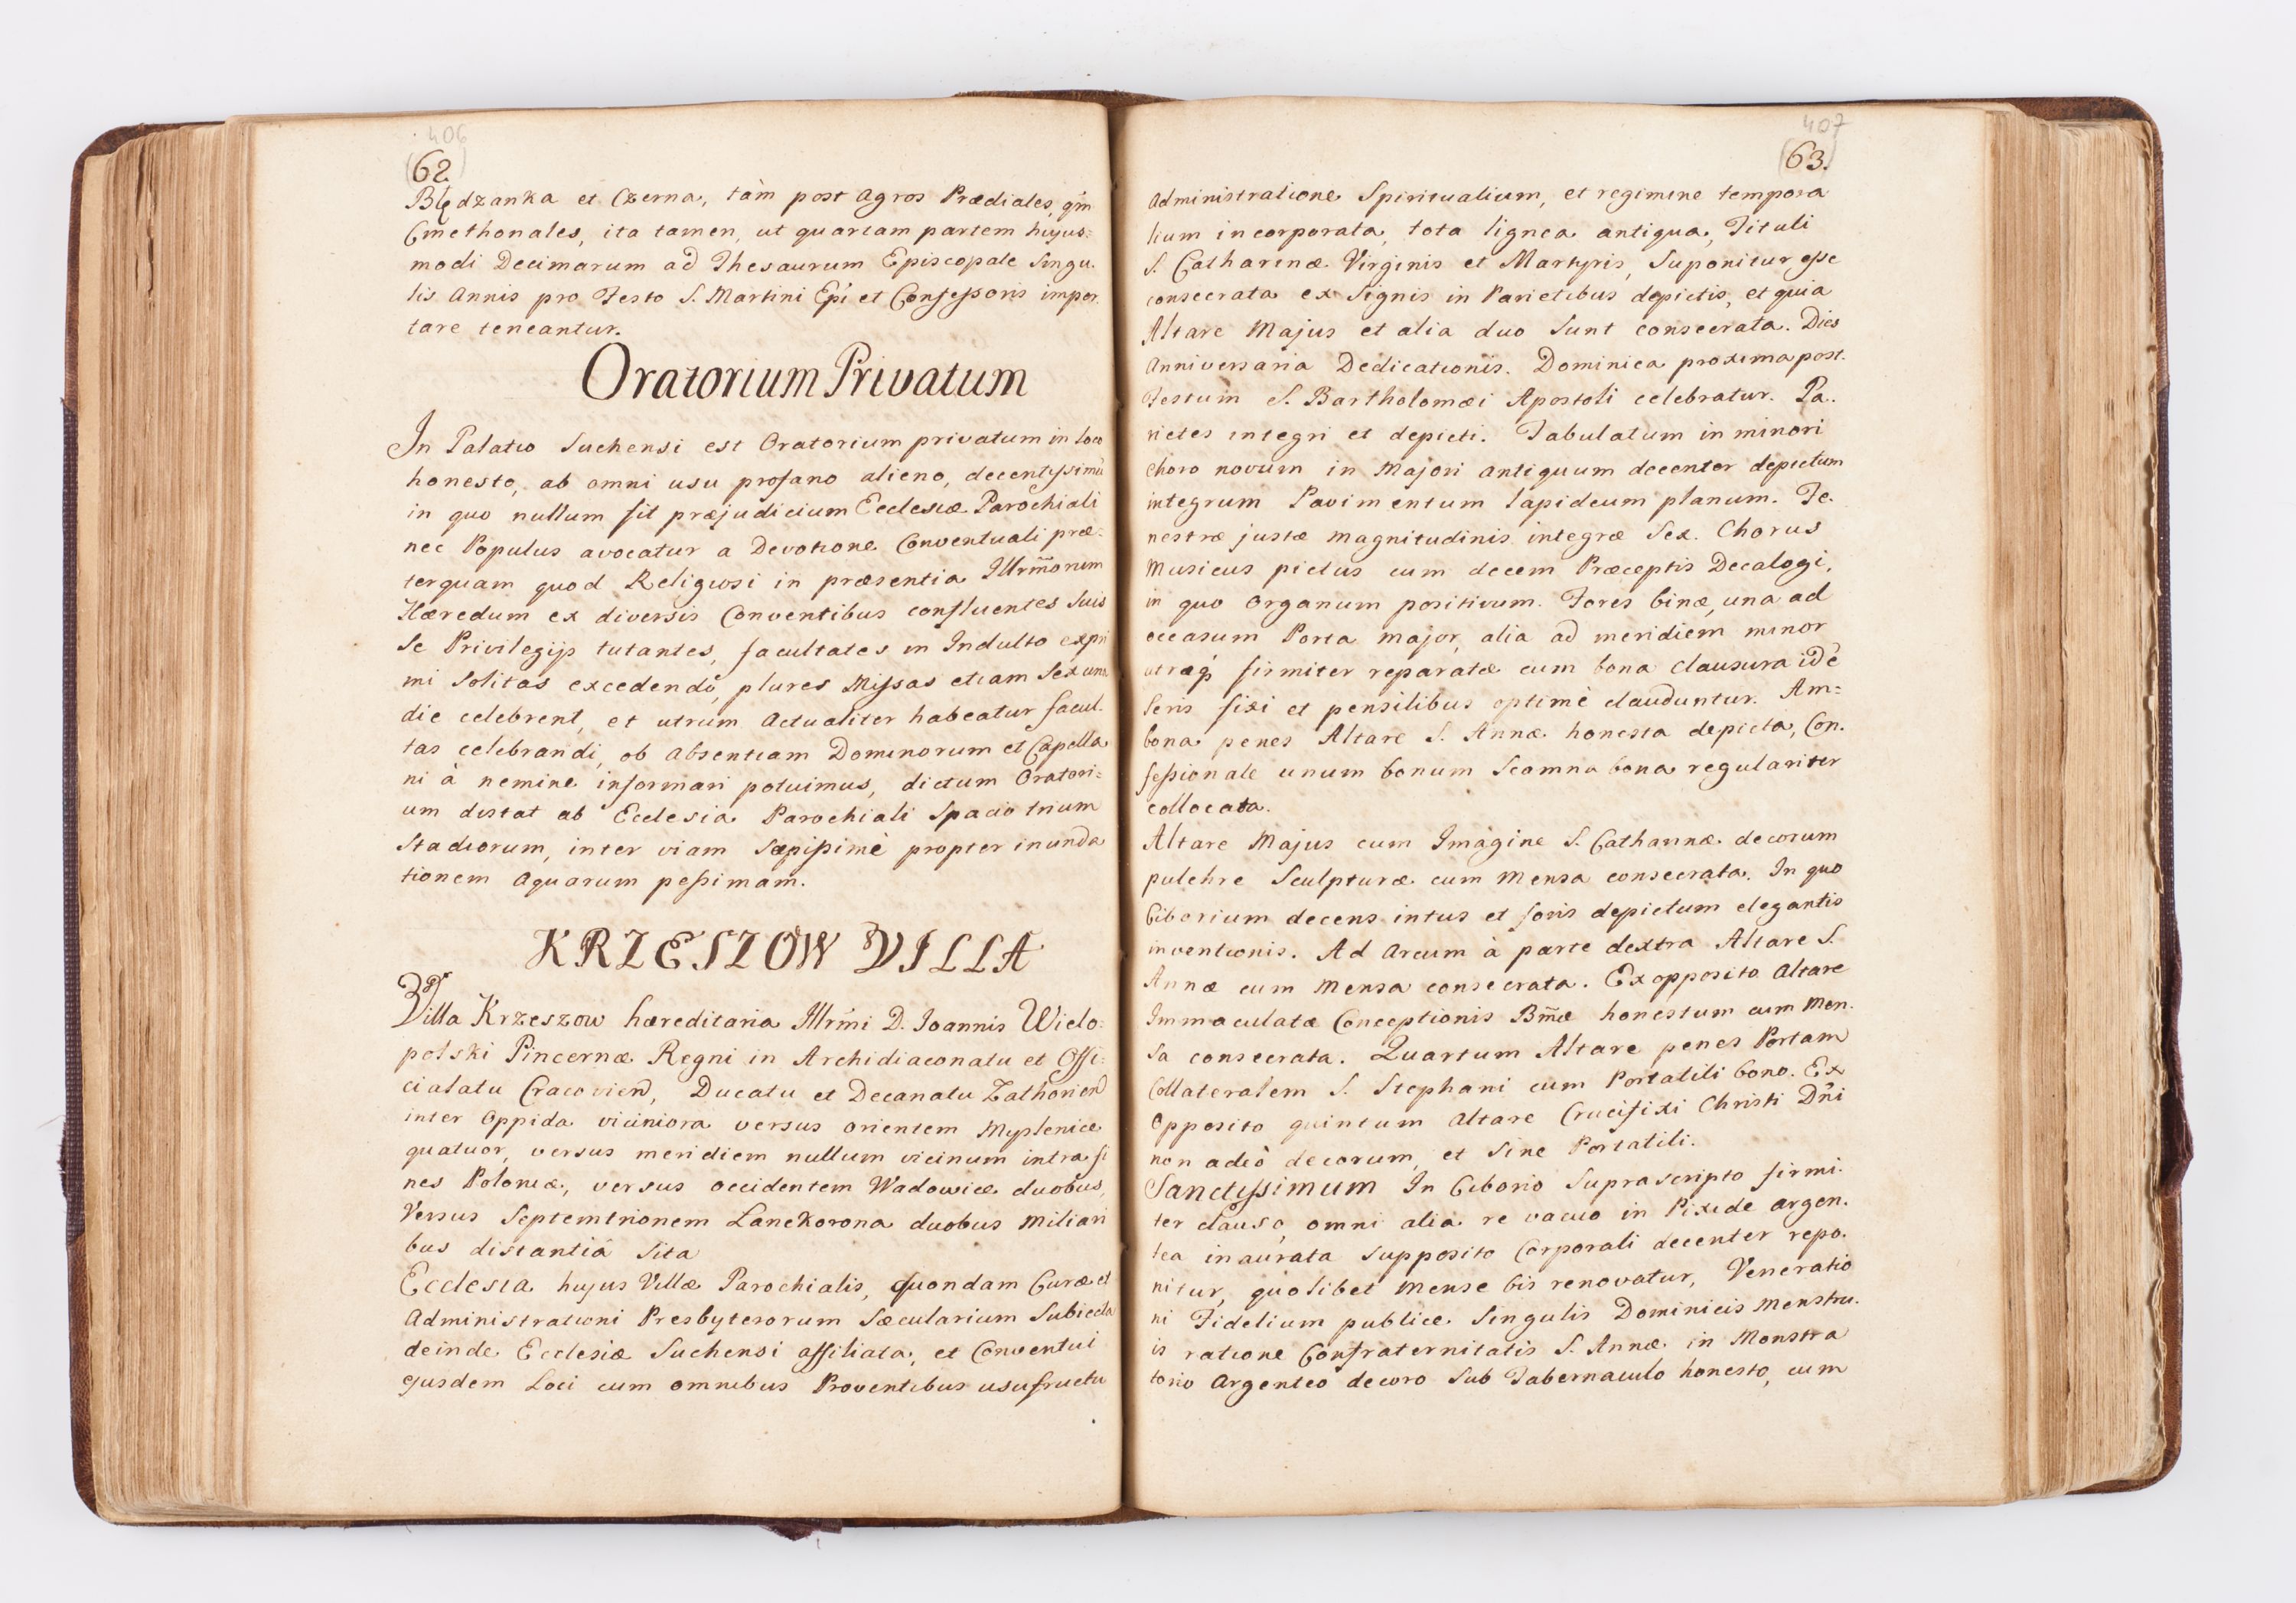 406
(62)
Blędzanka et Czerna, tàm post agros Prædiales, qm̃
Cmethonales, ita tamen, ut quartam partem hujus=
modi Decimarum ad Thesaurum Episcopale Singu.
lis Annis pro Festo S. Martini Epi et Confessoris impor.
tare teneantur.
Oratorium Privatum
In Palatio Suchensi est Oratorium privatum in loco
honesto, ab omni usu profano alieno, decentissimũ
in quo nullum fit præjudicium Ecclesiæ Parochiali
nec Populus avocatur a Devotione Conventuali præ=
terquam quod Religiosi in præsentia Illrm̃orum
Hæredum ex diversis Conventibus confluentes Suis
Se Privilegijs tutantes, facultates in Indulto expri
mi Solitas excedendò, plures Missas etiam Sex una
die celebrent, et utrum actualiter habeatur facul.
tas celebrandi, ob absentiam Dominorum et Capella
ni à nemine informari potuimus, dictum Oratori=
um distat ab Ecclesia Parochiali Spacio trium
Stadiorum, inter viam Sæpissimè propter inunda
tionem aquarum pessimam.
KRZESZOW VILLA
Villa Krzeszow hæreditaria Illrm̃i D. Joannis Wielo=
polski Pincernæ Regni in Archidiaconatu et Offi=
cialatu Cracovien, Ducatu et Decanatu Zathorien
inter Oppida viciniora versus orientem Myslenice
quatuor, versus meridiem nullum vicinum intra fi
nes Poloniæ, versus occidentem Wadowice duobus,
Versus Septemtrionem Lanckorona duobus miliari
bus distantiâ Sita
Ecclesia hujus Villæ Parochialis, quondam Curæ et
Administrationi Presbyterorum Sæcularium Subiecta
deinde Ecclesiæ Suchensi affiliata, et Conventui
ejusdem Loci cum omnibus Proventibus usufructu
407
(63.)
administratione Spiritualium, et regimine tempora
lium incorporata, tota lignea antiqua, Tituli
S. Catharinæ Virginis et Martyris, Suponitur esse
consecrata ex Signis in Parietibus depictis, et quia
Altare Majus et alia duo Sunt consecrata. Dies
anniversaria Dedicationis. Dominica proxima post.
Festum S. Bartholomæi Apostoli celebratur. Pa.
rietes integri et depicti. Tabulatum in minori
choro novum in Majori antiquum decenter depictum
integrum Pavimentum lapideum planum. Fe.
nestræ justæ magnitudinis integræ Sex. Chorus
Musicus pictus cum decem Præceptis Decalogi,
in quo Organum positivum. Fores binæ, una ad
occasum Porta major, alia ad meridiem minor
utræq; firmiter reparatæ cum bona clausura idẽ
Seris fixi et pensilibus optimè clauduntur. Am=
bona penes Altare S. Annæ honesta depicta, Con.
fessionale unum bonum Scamna bona regulariter
collocata.
Altare Majus cum Imagine S. Catharinæ decorum
pulchre Sculpturæ cum Mensa consecrata. In quo
Ciborium decens intus et foris depictum elegantis
inventionis. Ad arcum à parte dextra Altare S.
Annæ cum Mensa consecrata. Ex opposito Altare
Immaculatæ Conceptionis Bm̃æ honestum cum Men.
sa consecrata. Quartum Altare penes Portam
Collateralem S. Stephani cum Portatili bono. Ex
Opposito quintum Altare Crucifixi Christi Dñi
non adeò decorum, et Sine Portatili.
Sanctissimum In Ciborio Suprascripto firmi.
ter clauso, omni alia re vacuo in Pixide argen.
tea inaurata Supposito Corporali decenter repo.
nitur, quolibet mense bis renovatur, Veneratio
ni Fidelium publicæ Singulis Dominicis menstru.
is ratione Confraternitatis S. Annæ in Monstra
torio Argenteo decoro Sub Tabernaculo honesto, cum